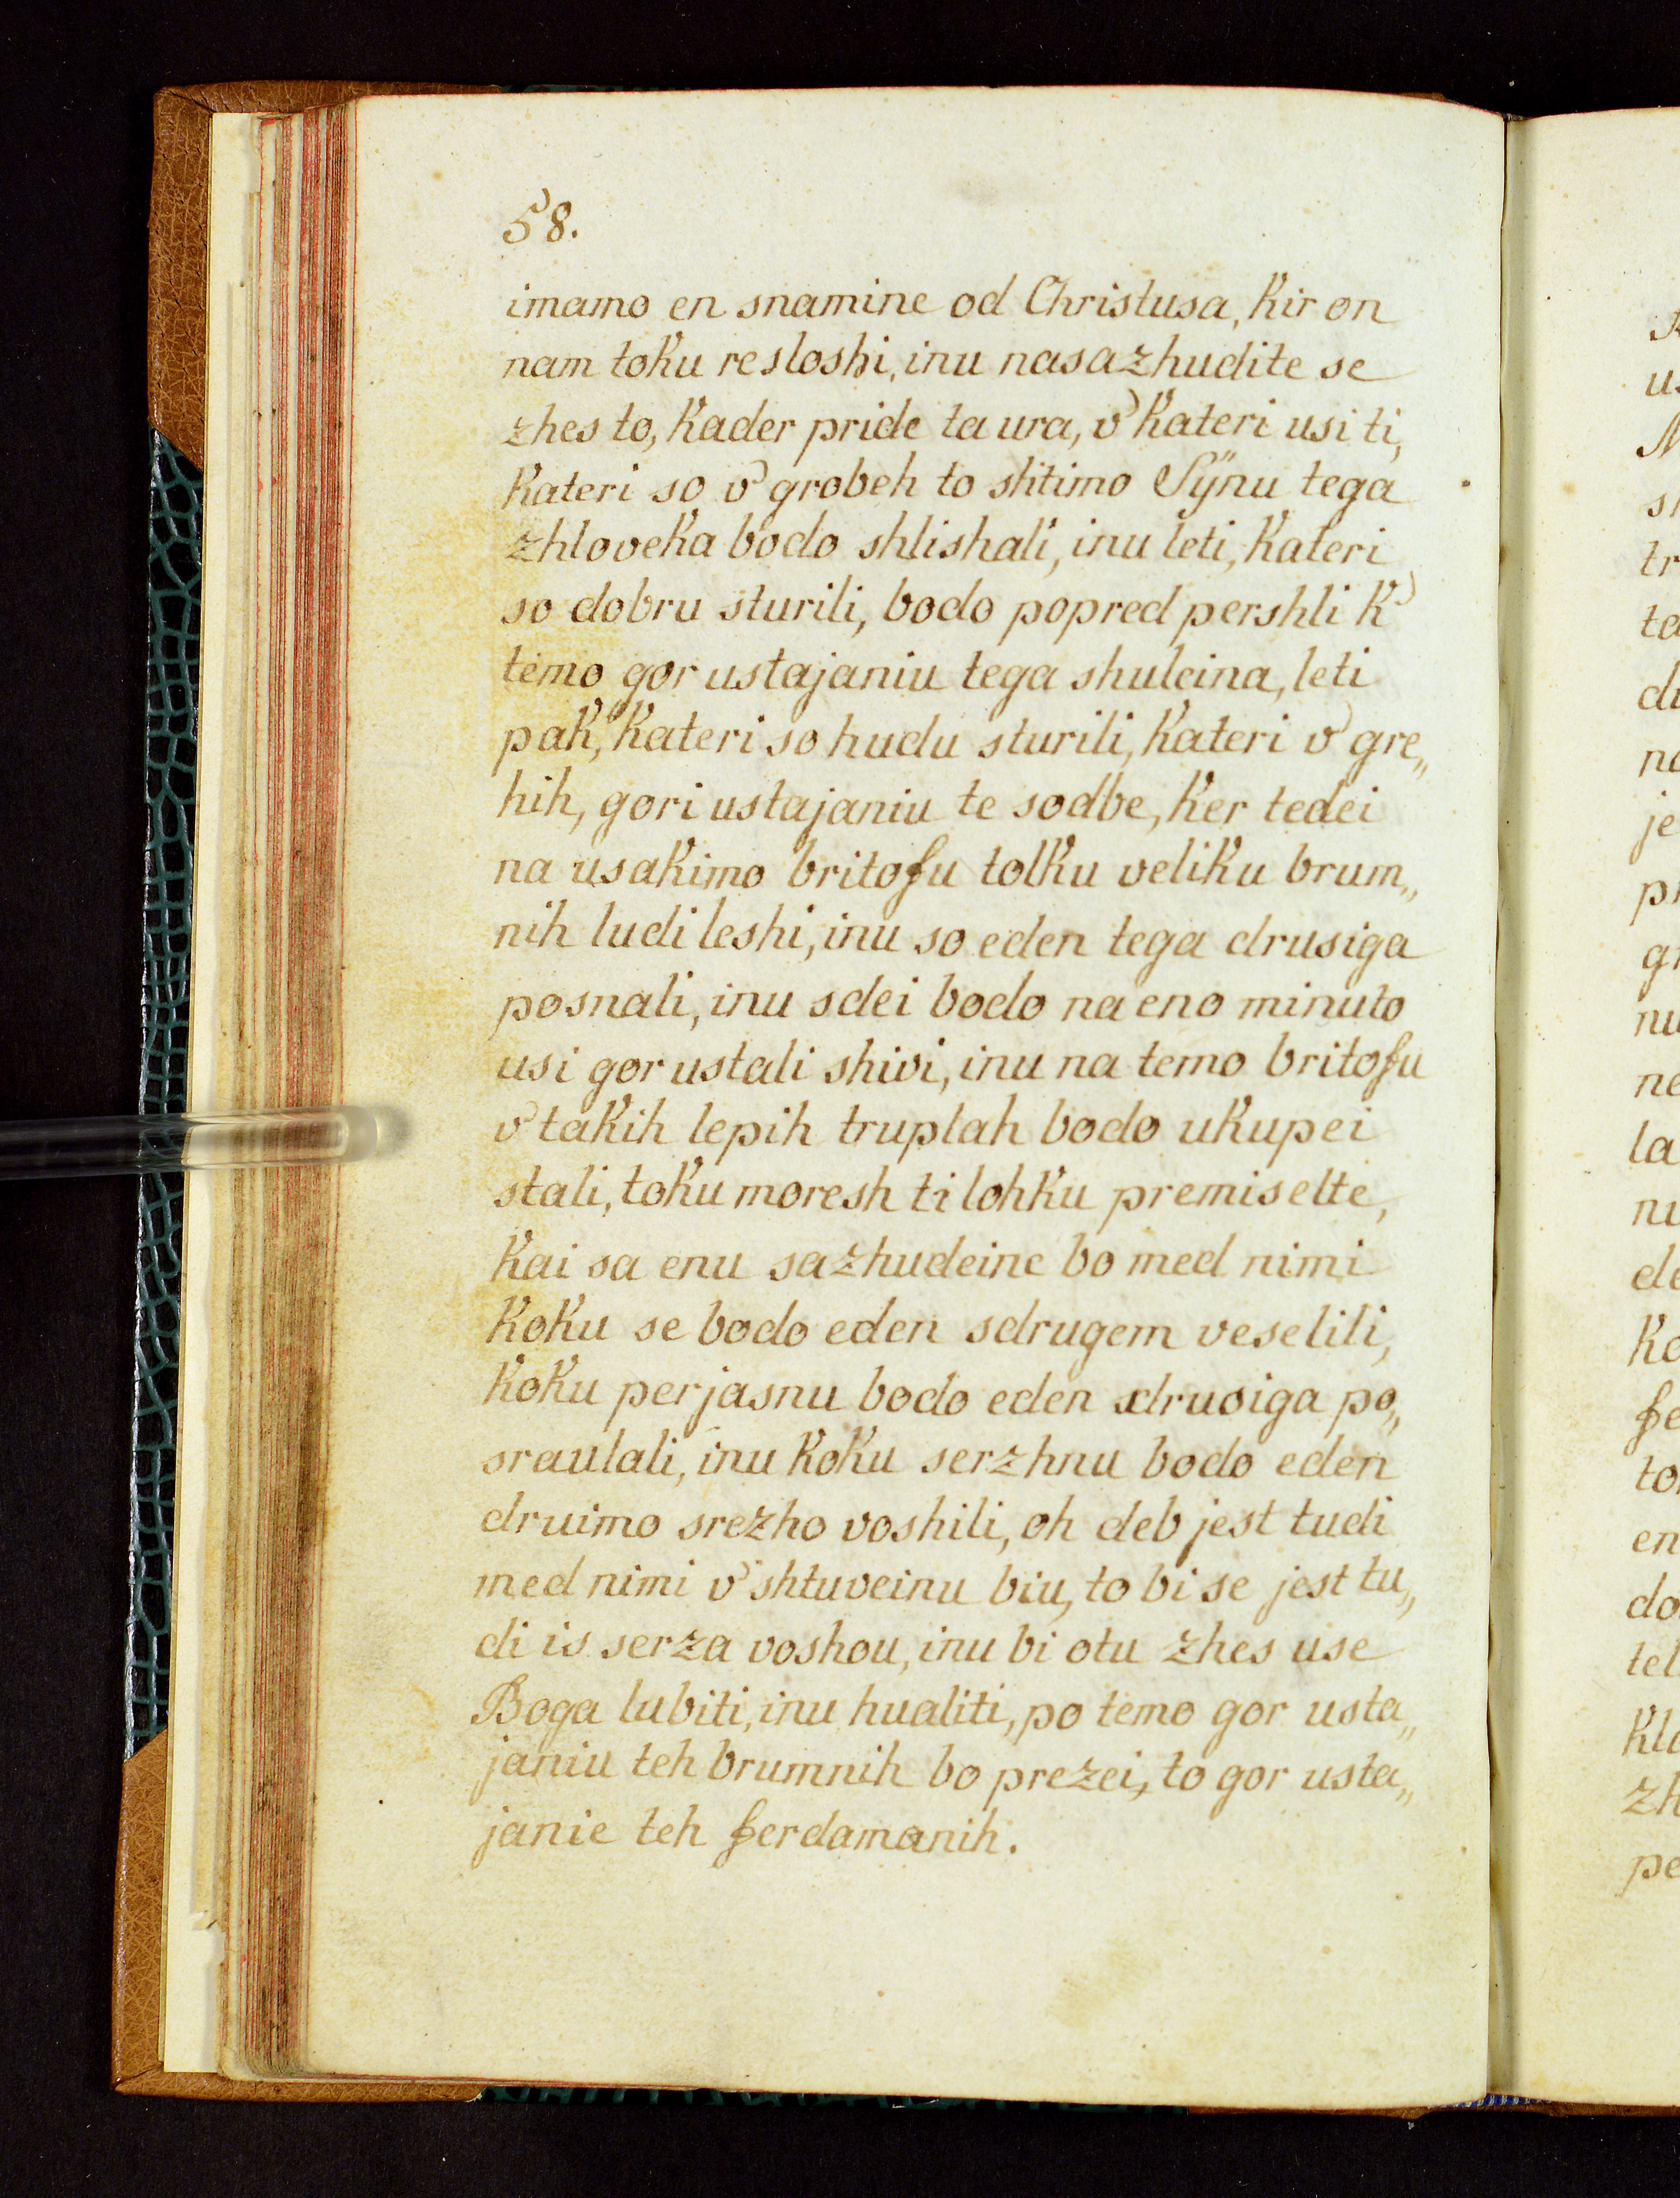 58.
imamo en snamine od Christusa, kir on
nam toku resloshi, inu nasazhudite se
zhes to, kader pride ta ura, v' kateri usi ti,
kateri so v' grobeh to shtimo Sÿnu tega
zhloveka bodo shlishali, inu leti, kateri
so dobru sturili, bodo popred pershli k'
temo gor ustajaniu tega shuleina, leti
pak, kateri so hudu sturili, kateri v' gre„
hih, gori ustajaniu te sodbe, ker tedei
na usakimo britofu tolku veliku brum„
nih ludi leshi, inu so eden tega drusiga
posnali, inu sdei bodo na eno minuto
usi gor ustali shivi, inu na temo britofu
v' takih lepih truplah bodo ukupei
stali, toku moresh ti lohku premiselte,
kai sa enu sazhudeine bo med nimi
koku se bodo eden sdrugem veselili,
koku perjasnu bodo eden sdrusiga po„
sraulali, inu koku serzhnu bodo eden
druimo srezho voshili, oh deb jest tudi
med nimi v' shtuveinu biu, to bi se jest tu„
di is serza voshou, inu bi otu zhes use
Boga lubiti, inu hualiti, po temo gor usta„
janiu teh brumnih bo prezei, to gor usta„
janie teh ferdamanih.